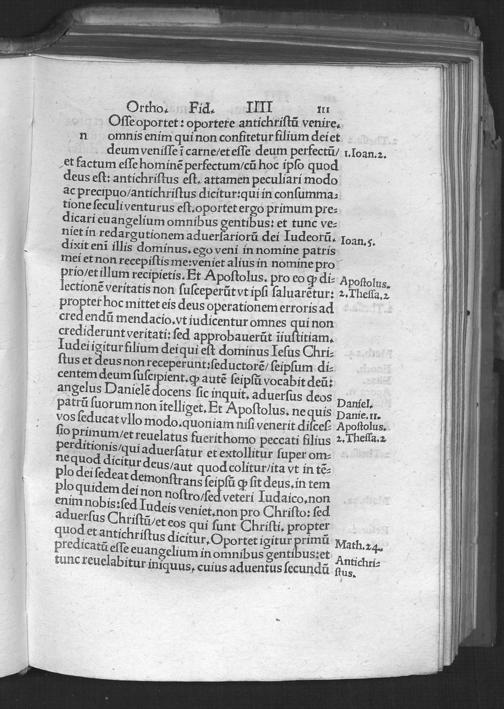 Ortho. Fid. IIII III
Osse oportet: oportere antichristū venire.
n omnis enim qui non confitetur filium dei et
deum venisse ī carne/et esse deum perfectū/ 1.Ioan.2.
et factum esse hominē perfectum/cū hoc ipso quod
deus est: antichristus est. attamen peculiari modo
ac precipuo/antichristus dicitur: qui in consumma⸗
tione seculi venturus est. oportet ergo primum pre⸗
dicari euangelium omnibus gentibus: et tunc ve⸗
niet in redargutionem aduersariorū dei Iudeorū. Ioan.5.
dixit eni illis dominus. ego veni in nomine patris
mei et non recepistis me: veniet alius in nomine pro
prio/et illum recipietis. Et Apostolus. pro eo ꝙ di⸗ Apostolus.
lectionē veritatis non susceperūt vt ipsi saluaretur: 2.Thessa.2
propter hoc mittet eis deus operationem erroris ad
credendū mendacio. vt iudicentur omnes qui non
crediderunt veritati: sed approbauerūt iiustitiam.
Iudei igitur filium dei qui est dominus Iesus Chri⸗
stus et deus non receperunt: seductorē/seipsum di⸗
centem deum suscipient. ꝙ autē seipsū vocabit deū:
angelus Danielē docens sic inquit. aduersus deos
patrū suorum non itelliget. Et Apostolus. ne quis Daniel.
vos seducat vllo modo. quoniam nisi venerit disces⸗ Danie.11.
sio primum/et reuelatus fuerit homo peccati filius Apostolus.
perditionis/qui aduersatur et extollitur super om⸗ 2.Thessa.2
ne quod dicitur deus/aut quod colitur/ita vt in tē⸗
plo dei sedeat demonstrans seipsū ꝙ sit deus. in tem
plo quidem dei non nostro/sed veteri Iudaico. non
enim nobis: sed Iudeis veniet. non pro Christo: sed
aduersus Christū/et eos qui sunt Christi. propter
quod et antichristus dicitur. Oportet igitur primū
predicatū esse euangelium in omnibus gentibus: et Math.24.
tunc reuelabitur iniquus. cuius aduentus secundū Antichri⸗
stus.